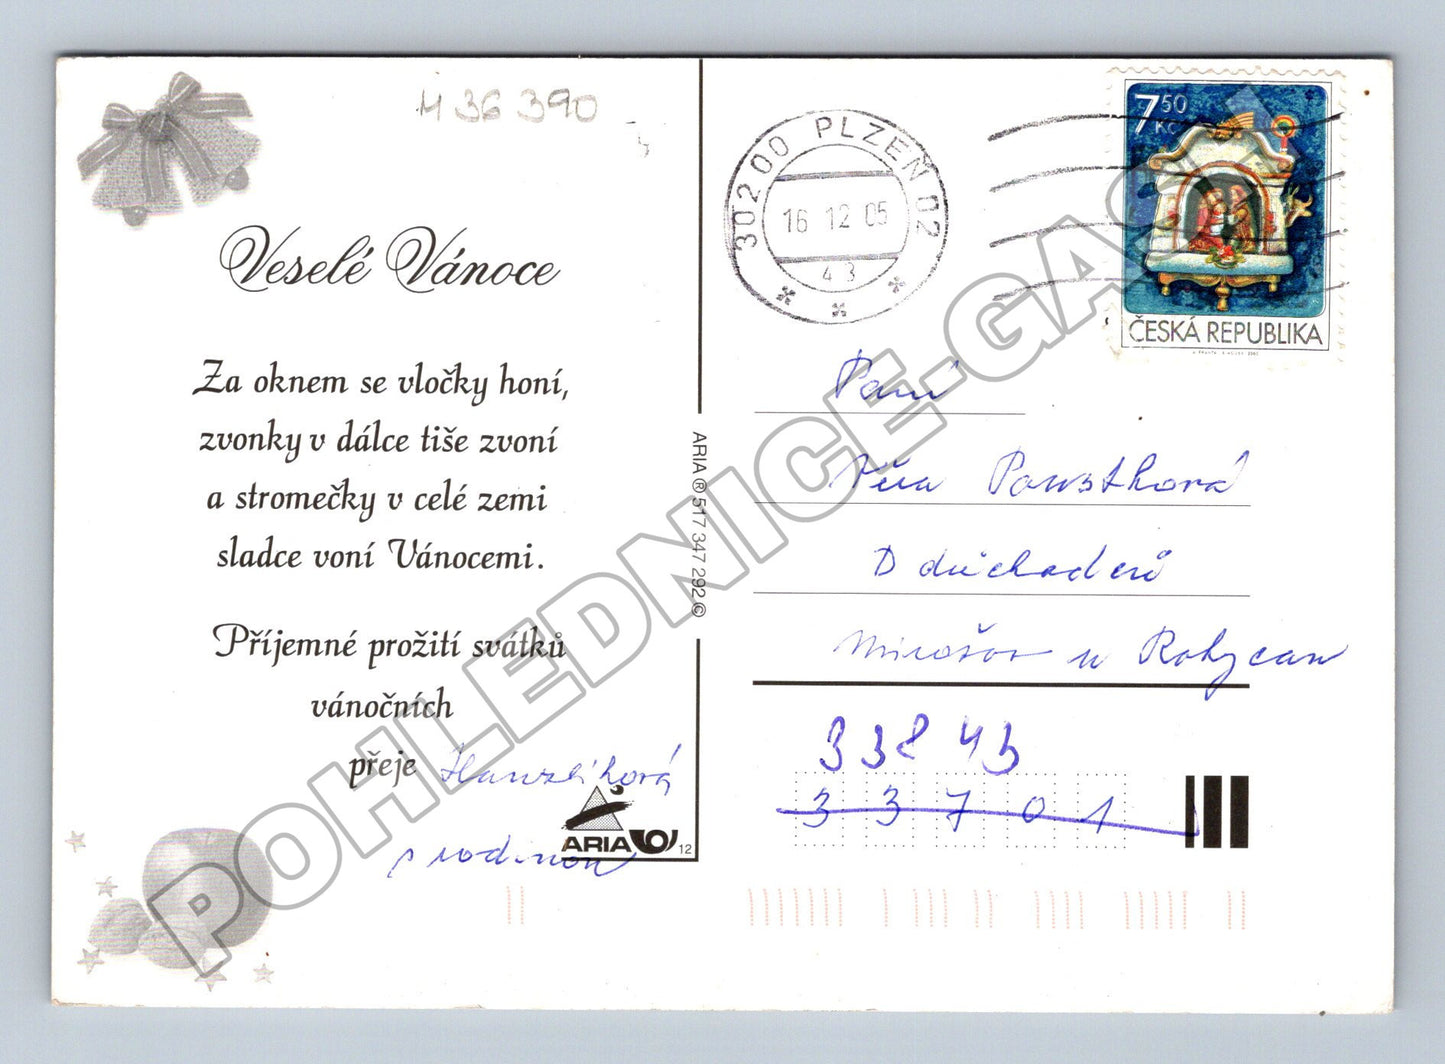 M 36 390
Veselé Vánoce
Za oknem se vločky honí,
zvonky v dálce tiše zvoní
a stromečky v celé zemi
sladce voní Vánocemi.
Příjemné prožití svátků
vánočních
přeje Hanzlíková
s rodinou
ARIA
12
ARIA ® 517 347 292 ©
30200 PLZEŇ 02
16 12 05
43
7 50
Kč
ČESKÁ REPUBLIKA
Paní
Věra Pousthorá
D důchodců
Mirošov u Rokycan
338 43
33701
POHLEDNICE-GASI